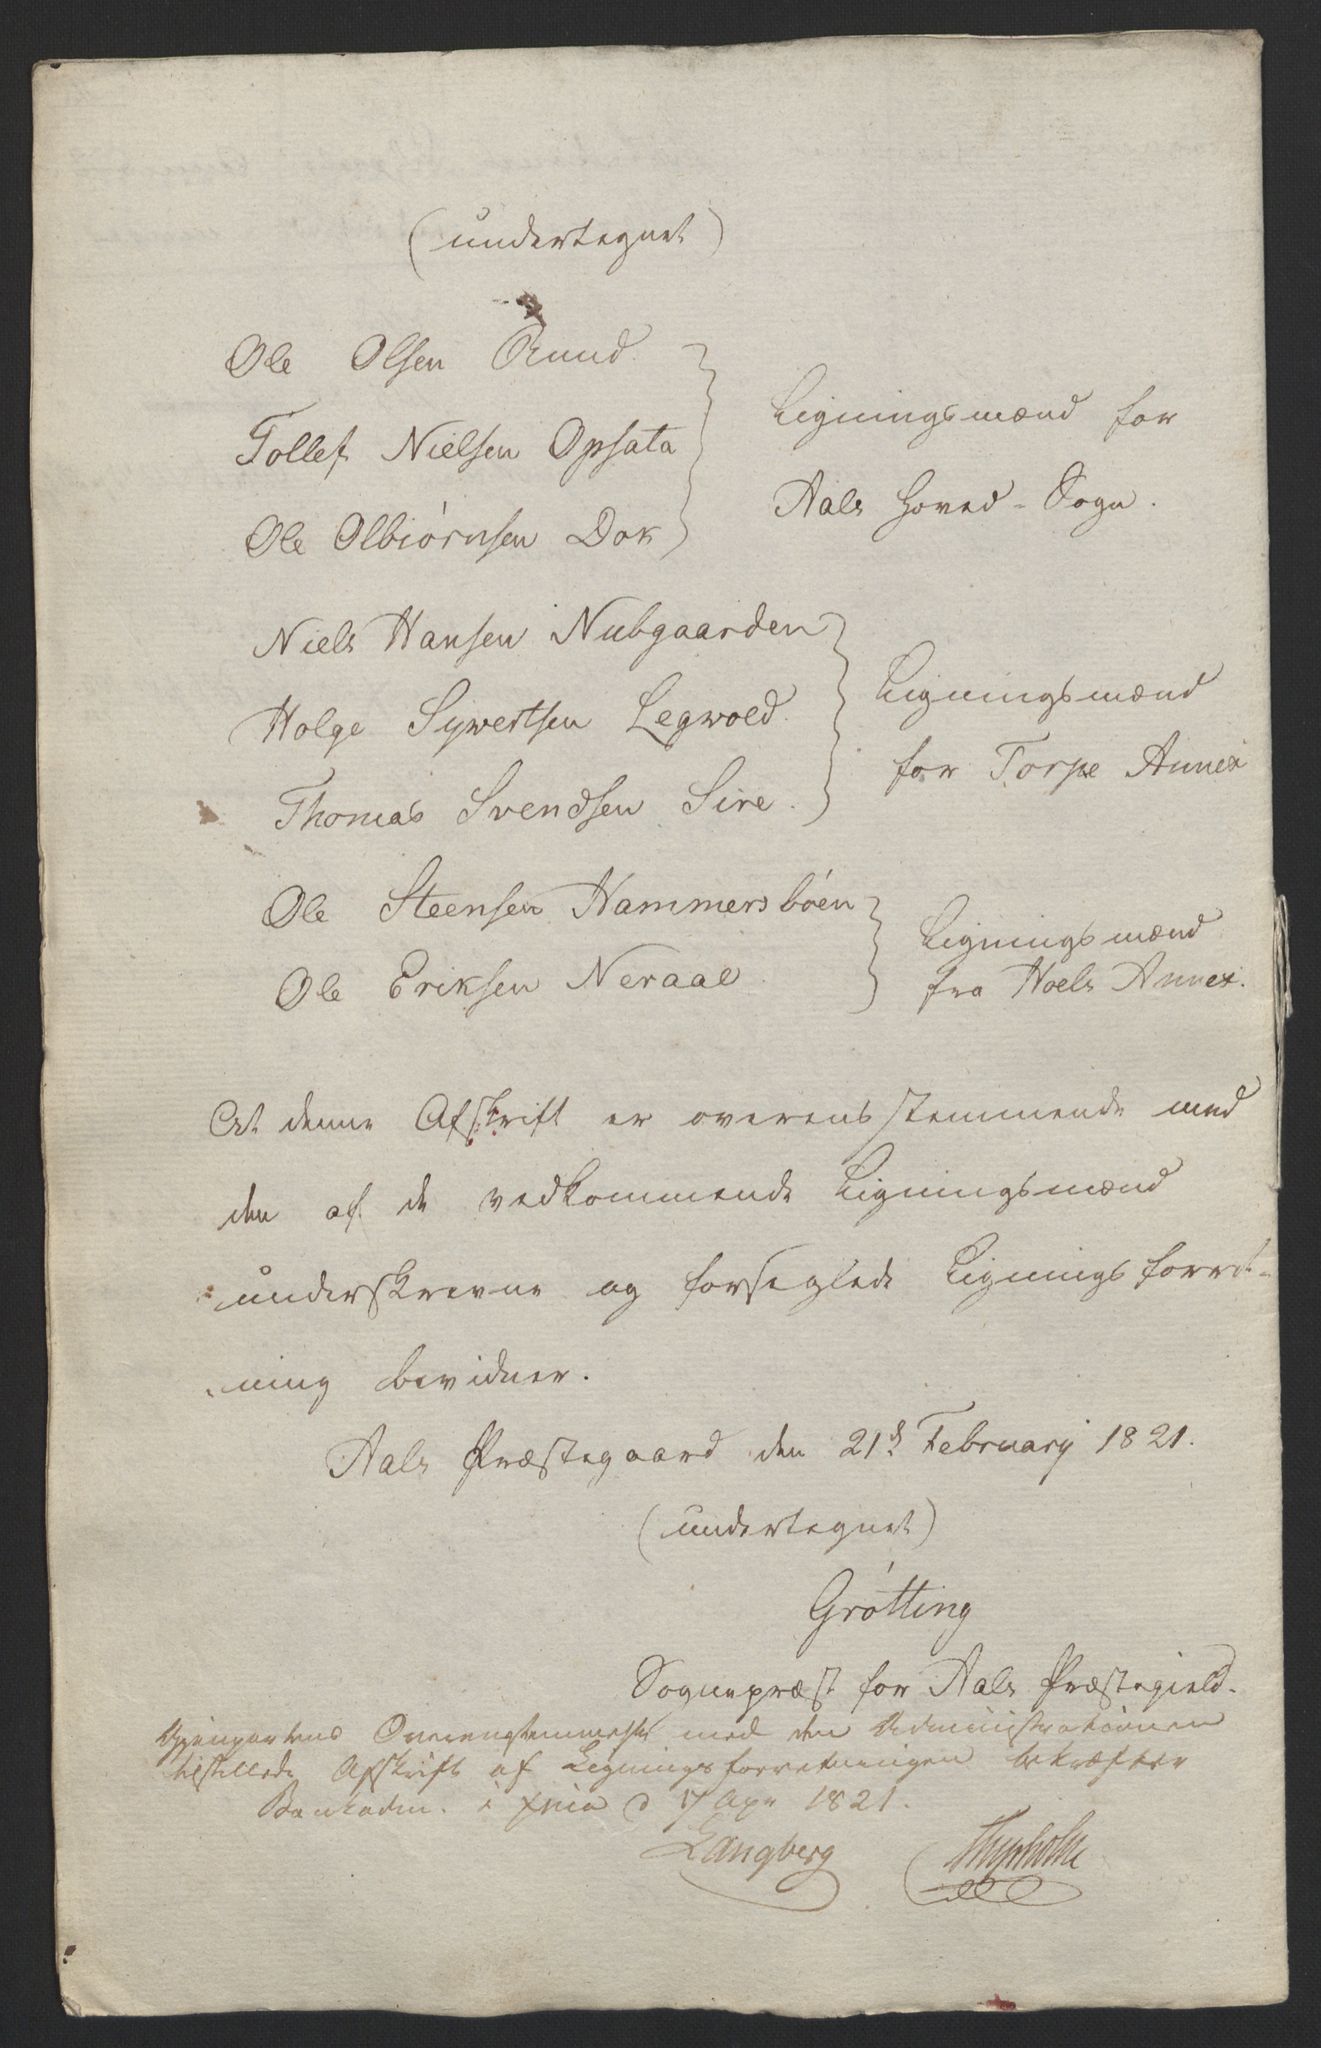 (undertegnet)
Ole Olsen Ruud
Tollef Nielsen Opsata
Ole Olbiørnsen Dok
Ligningsmænd for
Aals Hoved-Sogn.
Niels Hansen Nubgaarden
Holge Sywertsen Legwold
Thomas Svendsen Sire.
Ligningsmænd
for Torpe Annex
Ole Steensen Hammersbøen
Ole Eriksen Neraal
Ligningsmænd
fra Hoels Annex.
At denne Afskrift er overensstemmende med
den af de vedkommende Ligningsmænd
underskrevne og forseglede Ligningsforret-
ning bevidner.
Aals Præstegaard den 21d. February 1821.
(undertegnet)
Grøtting
Sognepræst for Aals Præstegield.
Gjenpartens Overensstemmelse med den Administrationen
tilstillede Afskrift af Ligningsforretningen bekræfter
Bankadm. i Xnia d 17 Apr 1821.
Langberg